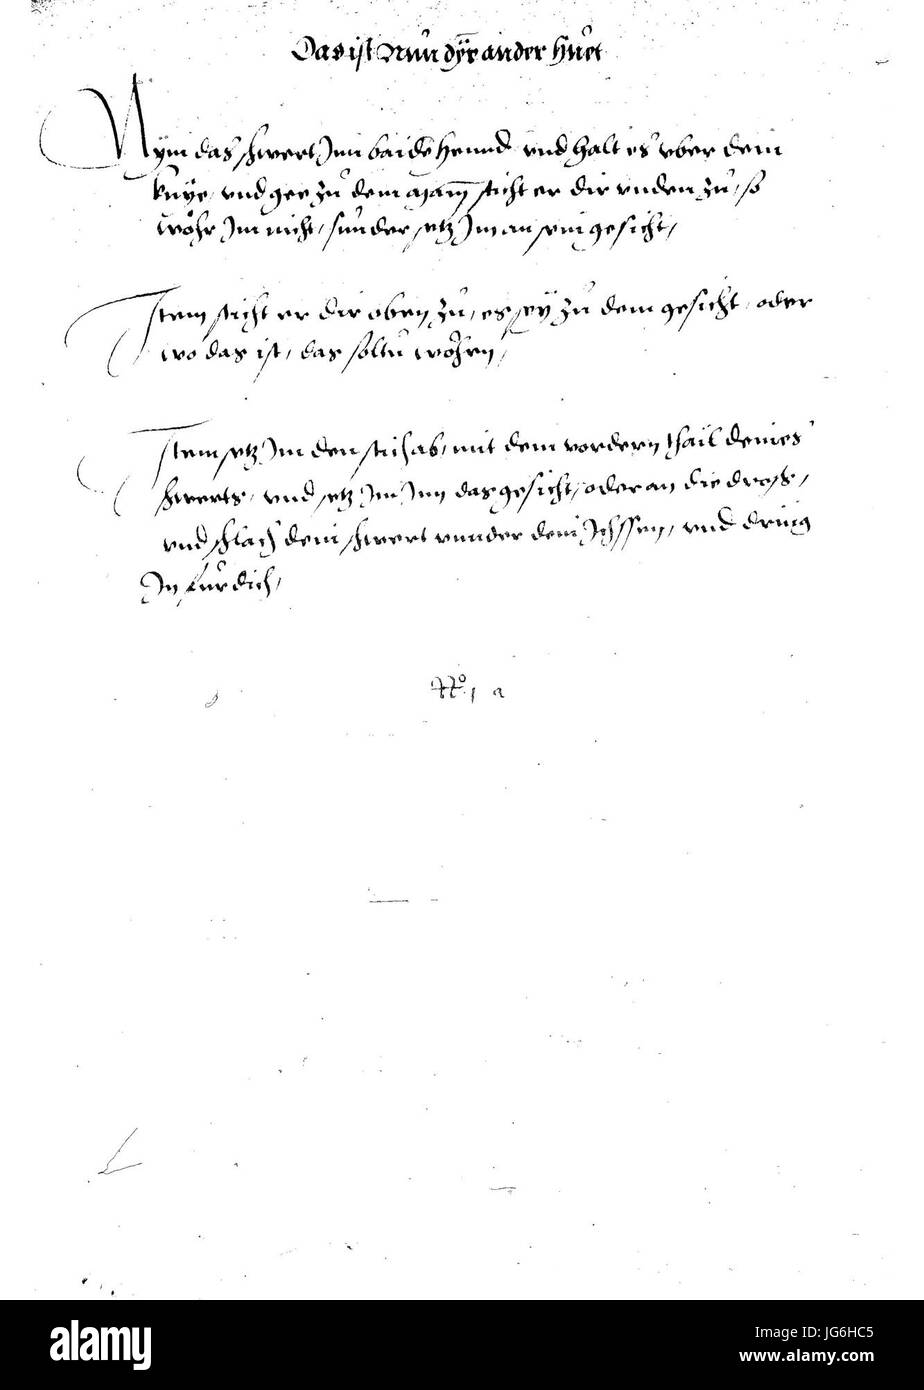 Das ist Nun dÿe ander huet
Nÿm das schwert Jnn baide hennd vnd halt es vber dein
knÿe, vnd gee zů dem Man, sticht er dir vnden zů, so
wőhr Jm nicht, sůnder setz Jm an sein gesicht,
Item sticht er dir oben zů, es seÿ zů dem gesicht, oder
wo das ist, das soltu wőhren,
Item setz Jm den stich ab, mit dem vordern thail deines
schwerts, vnd setz Jm Jnn das gesicht, oder an die dross,
vnd schlach dein schwert vnnder dein Jchssen, vnd dring
Jn für dich,
No. 1 a
alamy
alamy
Image ID: JG6HC5
www.alamy.com